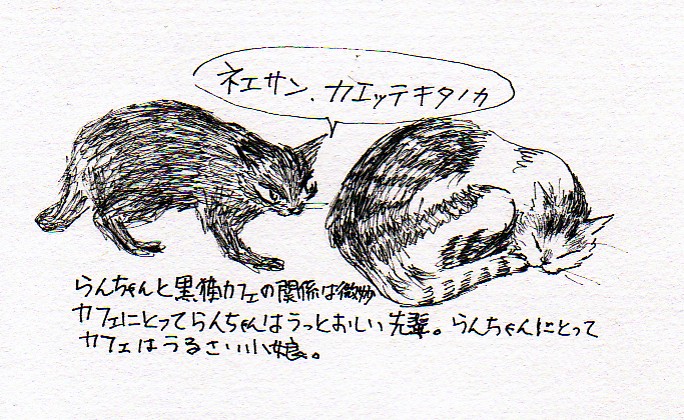 ネエサン、カエッテキタノカ
らんちゃんと黒猫カフェの関係は微妙
カフェにとってらんちゃんはうっとおしい先輩。らんちゃんにとって
カフェはうるさい小娘。